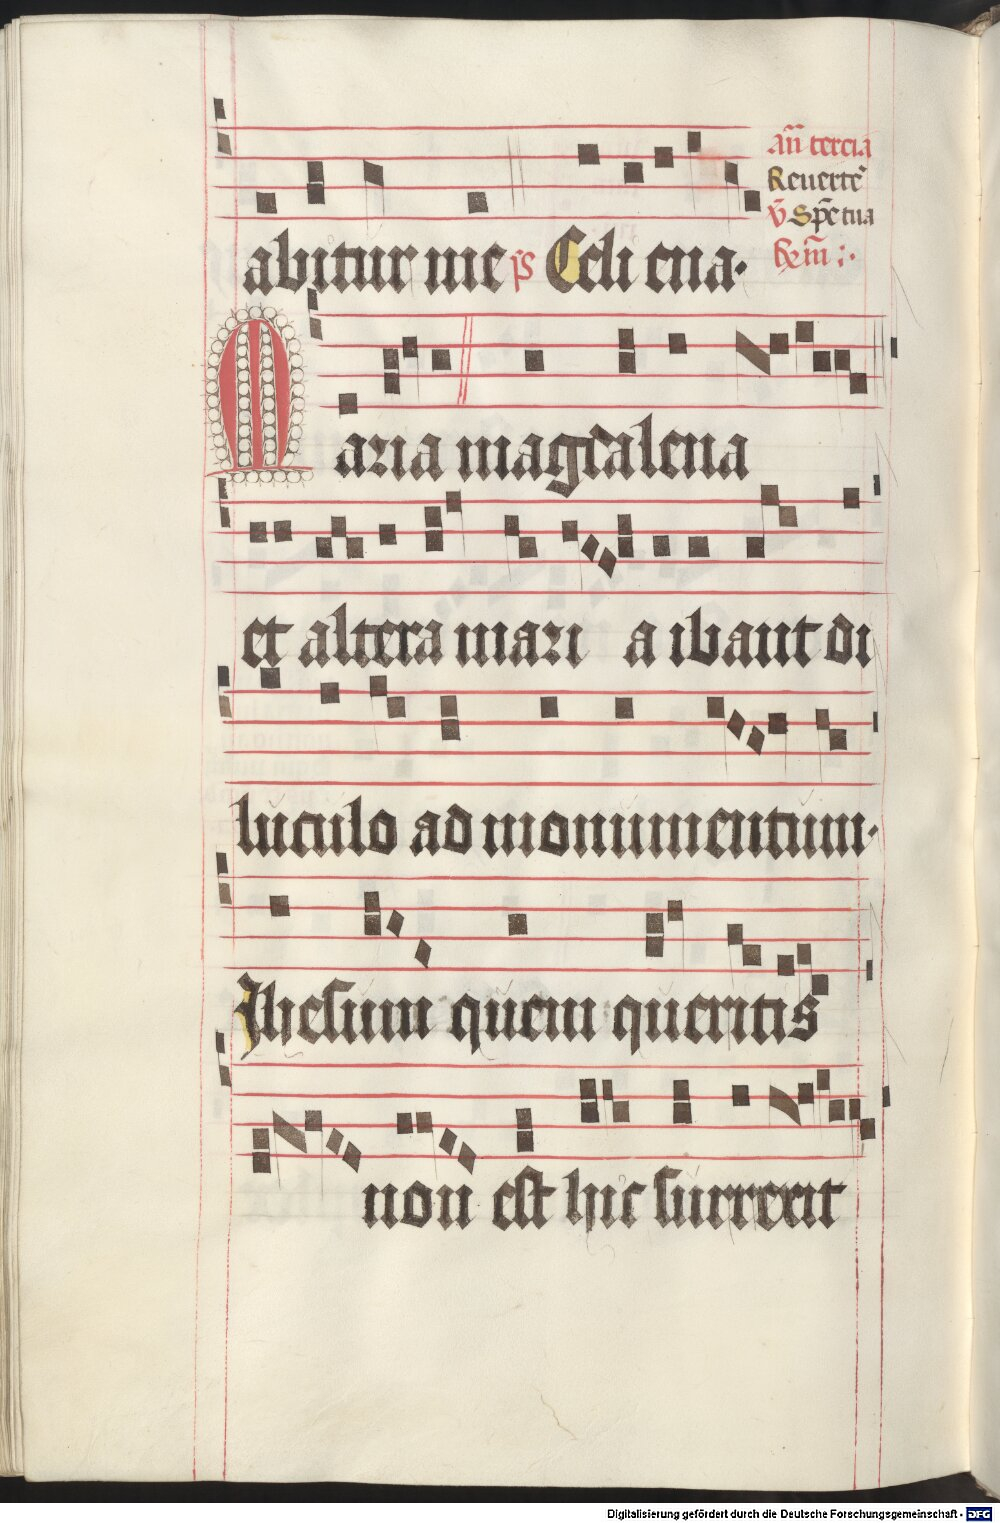 añ tercia
Reuerte᷑
v̄ Spe᷑ tua
bxm̄ :·
abitur me p̄s Celi ena·
Maria magdalena
et altera mari a ibant di
luculo ad monumentum·
Jhesum quem queritis
non est hic surrexit
Digitalisierung gefördert durch die Deutsche Forschungsgemeinschaft - DFG